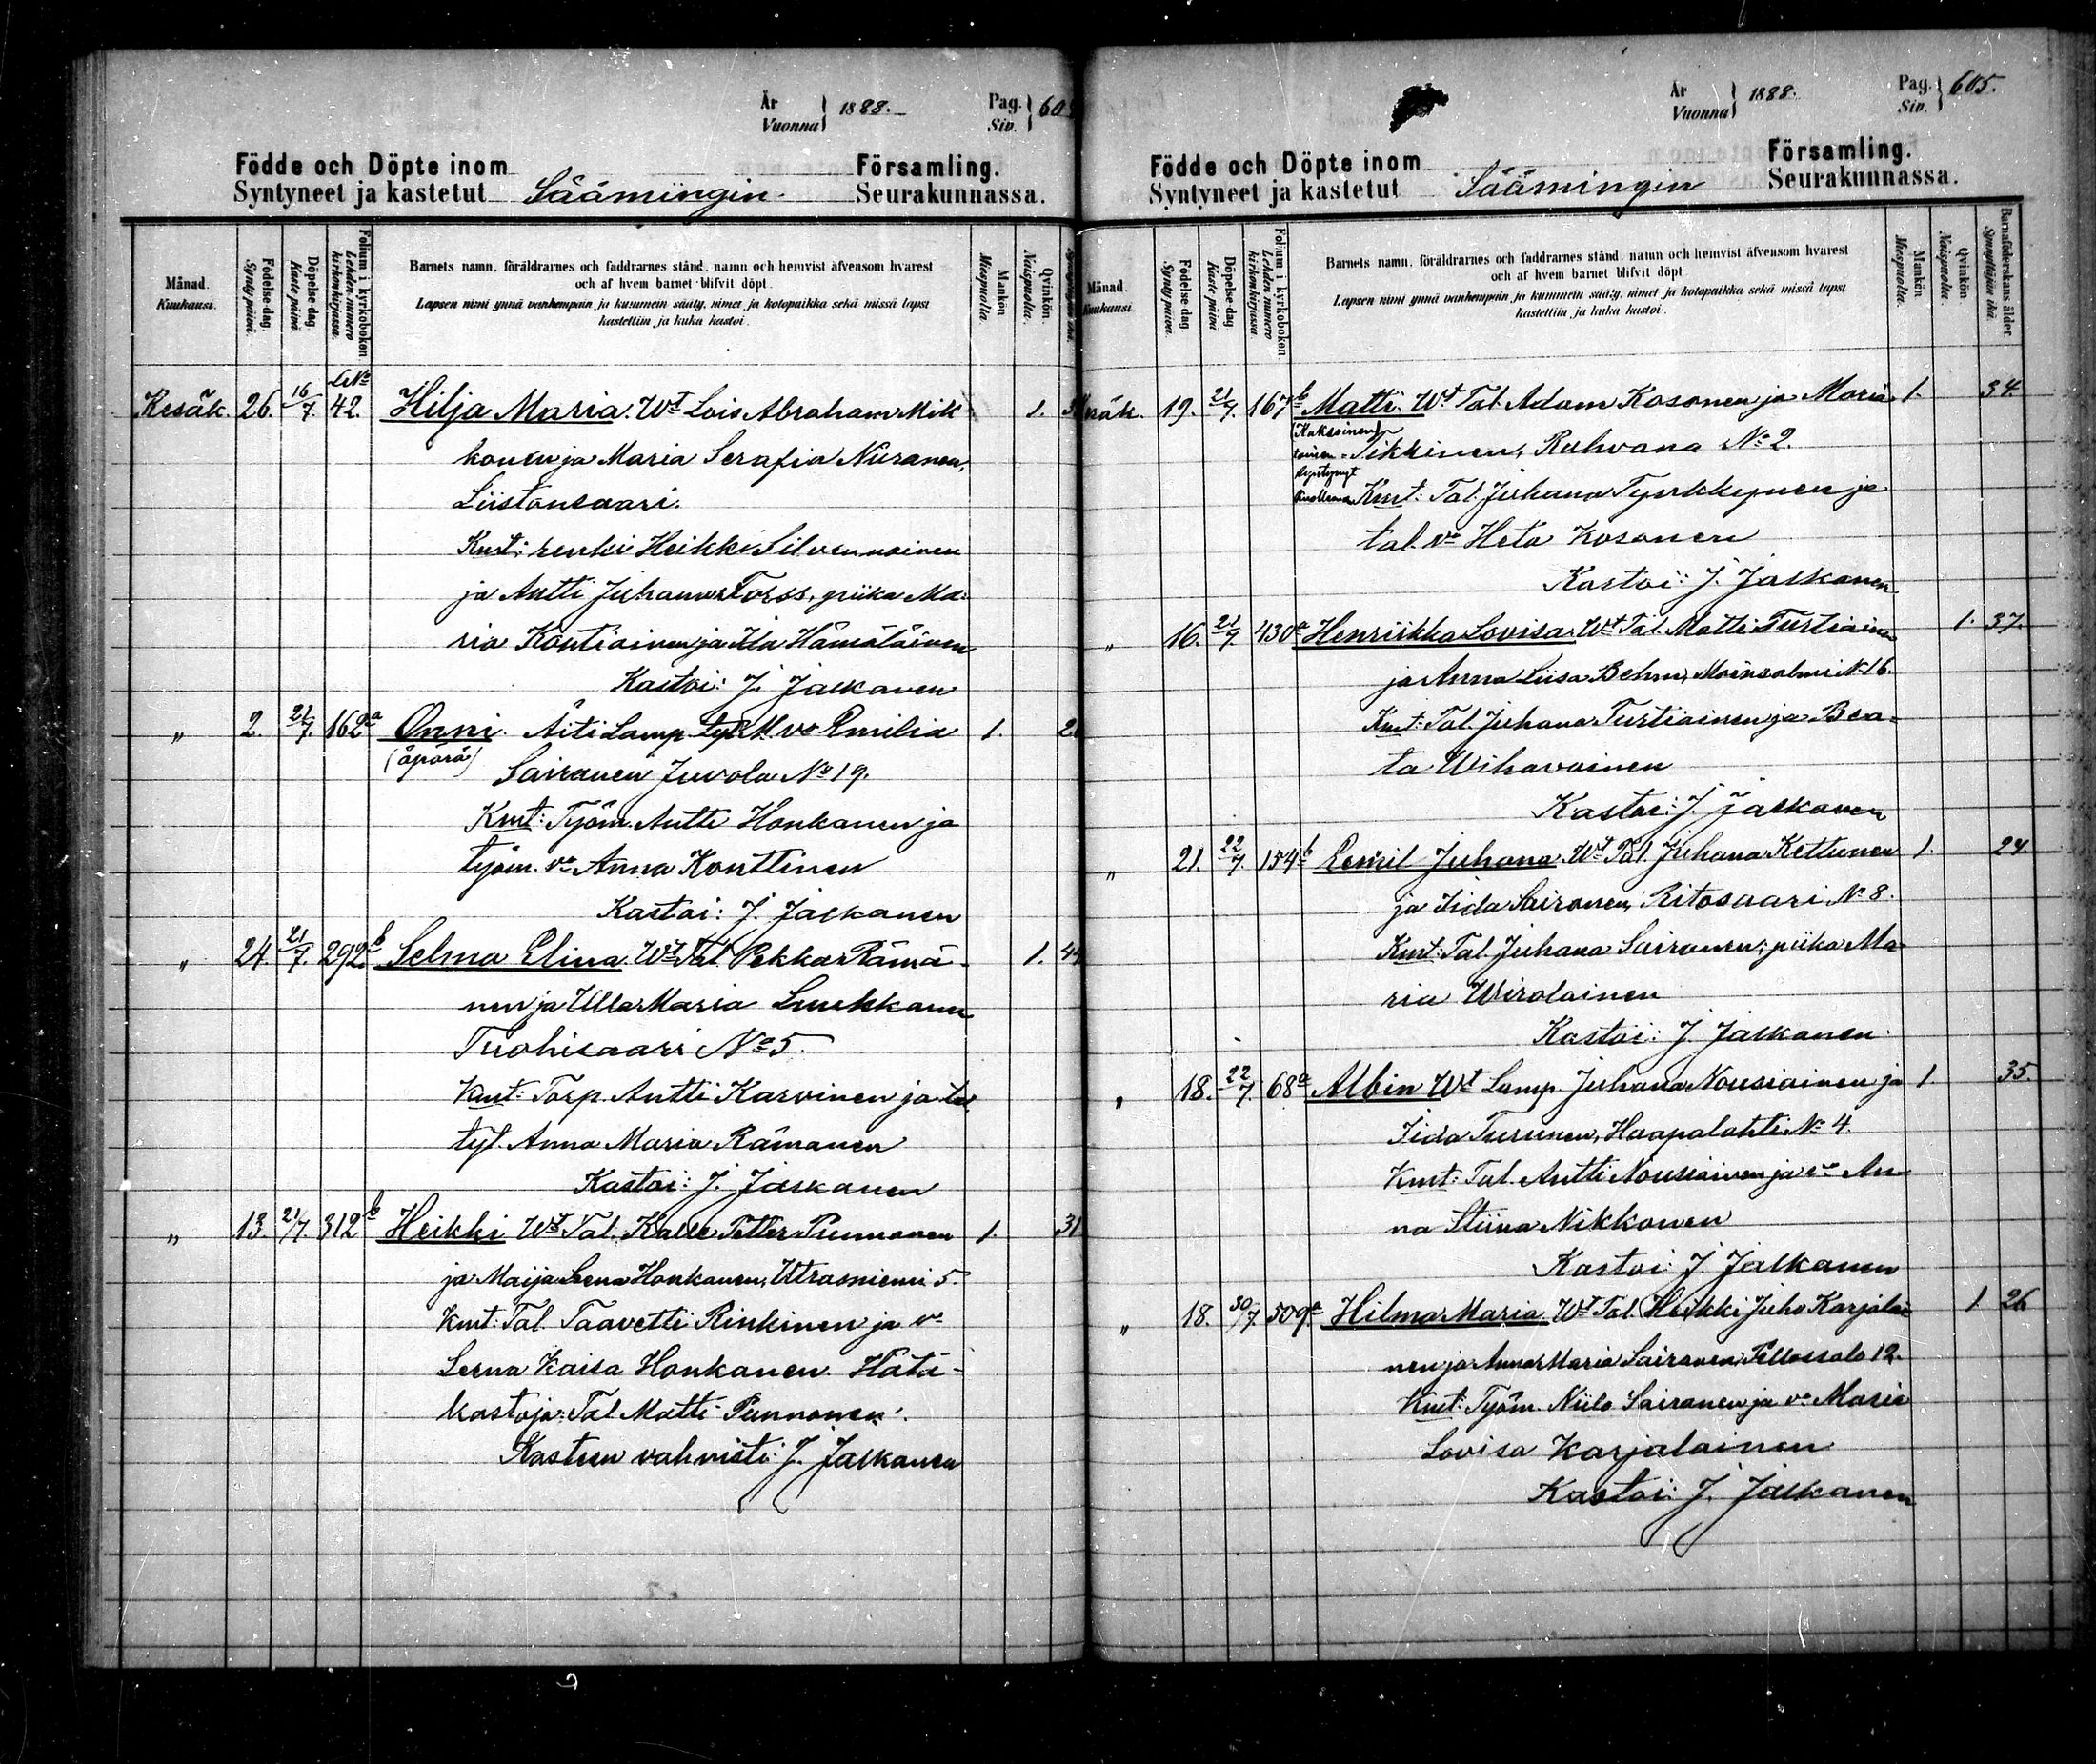 År
Vuonna } 1888.
Pag.
Siv. } 60
Födde och Döpte inom
Syntyneet ja kastetut Säämingin
Församling.
Seurakunnassa.
Månad.
Kuukausi.
Födelse-dag.
Synty päivä.
Döpelse-dag
Kaste päivä
Folium i kyrkoboken.
Lehden numero
kirkonkirjassa.
Barnets namn, föräldrarnes och faddrarnes stånd, namn och hemvist äfvensom hvarest
och af hvem barnet blifvit döpt.
Lapsen nimi ynnä vanhempain ja kummein sääty, nimet ja kotopaikka sekä missä lapsi
kastettiin ja kuka kastoi.
Mankön
Miespuolta.
Qvinkön.
Naispuolta.
Kesäk. 26. 16/7. 42. Hilja Maria. Wt Lois Abraham Mik- 1.
konen ja Maria Serafia Niiranen,
Liistonsaari.
Kmt: renki Heikki Silvennoinen
ja Antti Juhana Torss, piika Ma-
ria Kontiainen ja Ida Hämäläinen
Kastoi: J. Jalkanen
„ 2. 21/7. 162a Onni. Äiti Lamp. tyt. M. va Emilia 1. 2
(äpärä) Sairanen Juvola No 19.
Kmt: Työm. Antti Honkanen ja
työm. va Anna Konttinen
Kastoi: J. Jalkanen
„ 24. 21/7. 292b Selma Elina. Wt Tal. Pekka Rämä- 1. 44
nen ja Ulla Maria Luukkanen
Tuohisaari No 5.
Kmt: Torp. Antti Karvinen ja tal.
tyt. Anna Maria Rämänen
Kastoi: J. Jalkanen
„ 13. 21/7. 312b Heikki Wt Tal. Kalle Petter Punnonen 1. 31
ja Maija Leena Honkanen, Utrasniemi 5.
Kmt: Tal. Taavetti Rinkinen ja va
Leena Kaisa Honkanen. Hätä-
kastoja: Tal Matti Punnonen.
Kasteen vahvisti: J. Jalkanen
År
Vuonna } 1888.
Pag.
Siv. } 605.
Födde och Döpte inom
Syntyneet ja kastetut Säämingin
Församling.
Seurakunnassa.
Månad.
Kuukausi.
Födelse-dag.
Synty päivä.
Döpelse-dag
Kaste päivä
Folium i kyrkoboken
Lehden numero
kirkonkirjassa
Barnets namn, föräldrarnes och faddrarnes stånd, namn och hemvist äfvensom hvarest
och af hvem barnet blifvit döpt.
Lapsen nimi ynnä vanhempain ja kummein sääty, nimet ja kotopaikka sekä missä lapsi
kastettiin ja kuka kastoi.
Mankön
Miespuolta.
Qvinkön.
Naispuolta.
Barnaföderskans ålder.
Synnyttäjän ikä.
Kesäk. 19. 21/7. 167b Matti. Wt Tal. Adam Kosonen ja Maria 1. 34.
(Kaksoinen)
toinen Tikkinen, Ruhvana No 2.
syntynyt
kuollena Kmt: Tal. Juhana Tynkkynen ja
tal. va Heta Kosonen
Kastoi: J. Jalkanen
„ 16. 21/7. 430a Henriikka Lovisa. Wt Tal. Matti Turtiainen 1. 37.
ja Anna Liisa Behm, Moinsalmi No 16.
Kmt: Tal. Juhana Turtiainen ja Bea-
ta Wihavainen
Kastoi: J. Jalkanen
„ 21. 22/7. 154b Eemil Juhana. Wt Tal. Juhana Kettunen 1. 24.
ja Iida Sairanen, Ritosaari No 8.
Kmt: Tal. Juhana Sairanen, piika Ma-
ria Wirolainen
Kastoi: J. Jalkanen
„ 18. 22/7. 68a Albin Wt Lamp. Juhana Nousiainen ja 1. 35.
Iida Turunen, Haapalahti No 4.
Kmt: Tal. Antti Nousiainen ja va An-
na Stiina Nikkonen
Kastoi: J. Jalkanen
„ 18. 30/7. 509a Hilma Maria. Wt Tal. Heikki Juho Karjalai- 1. 26
nen ja Anna Maria Sairanen, Pellossalo 12.
Kmt: Työm. Niilo Sairanen ja va Maria
Lovisa Karjalainen
Kastoi: J. Jalkanen